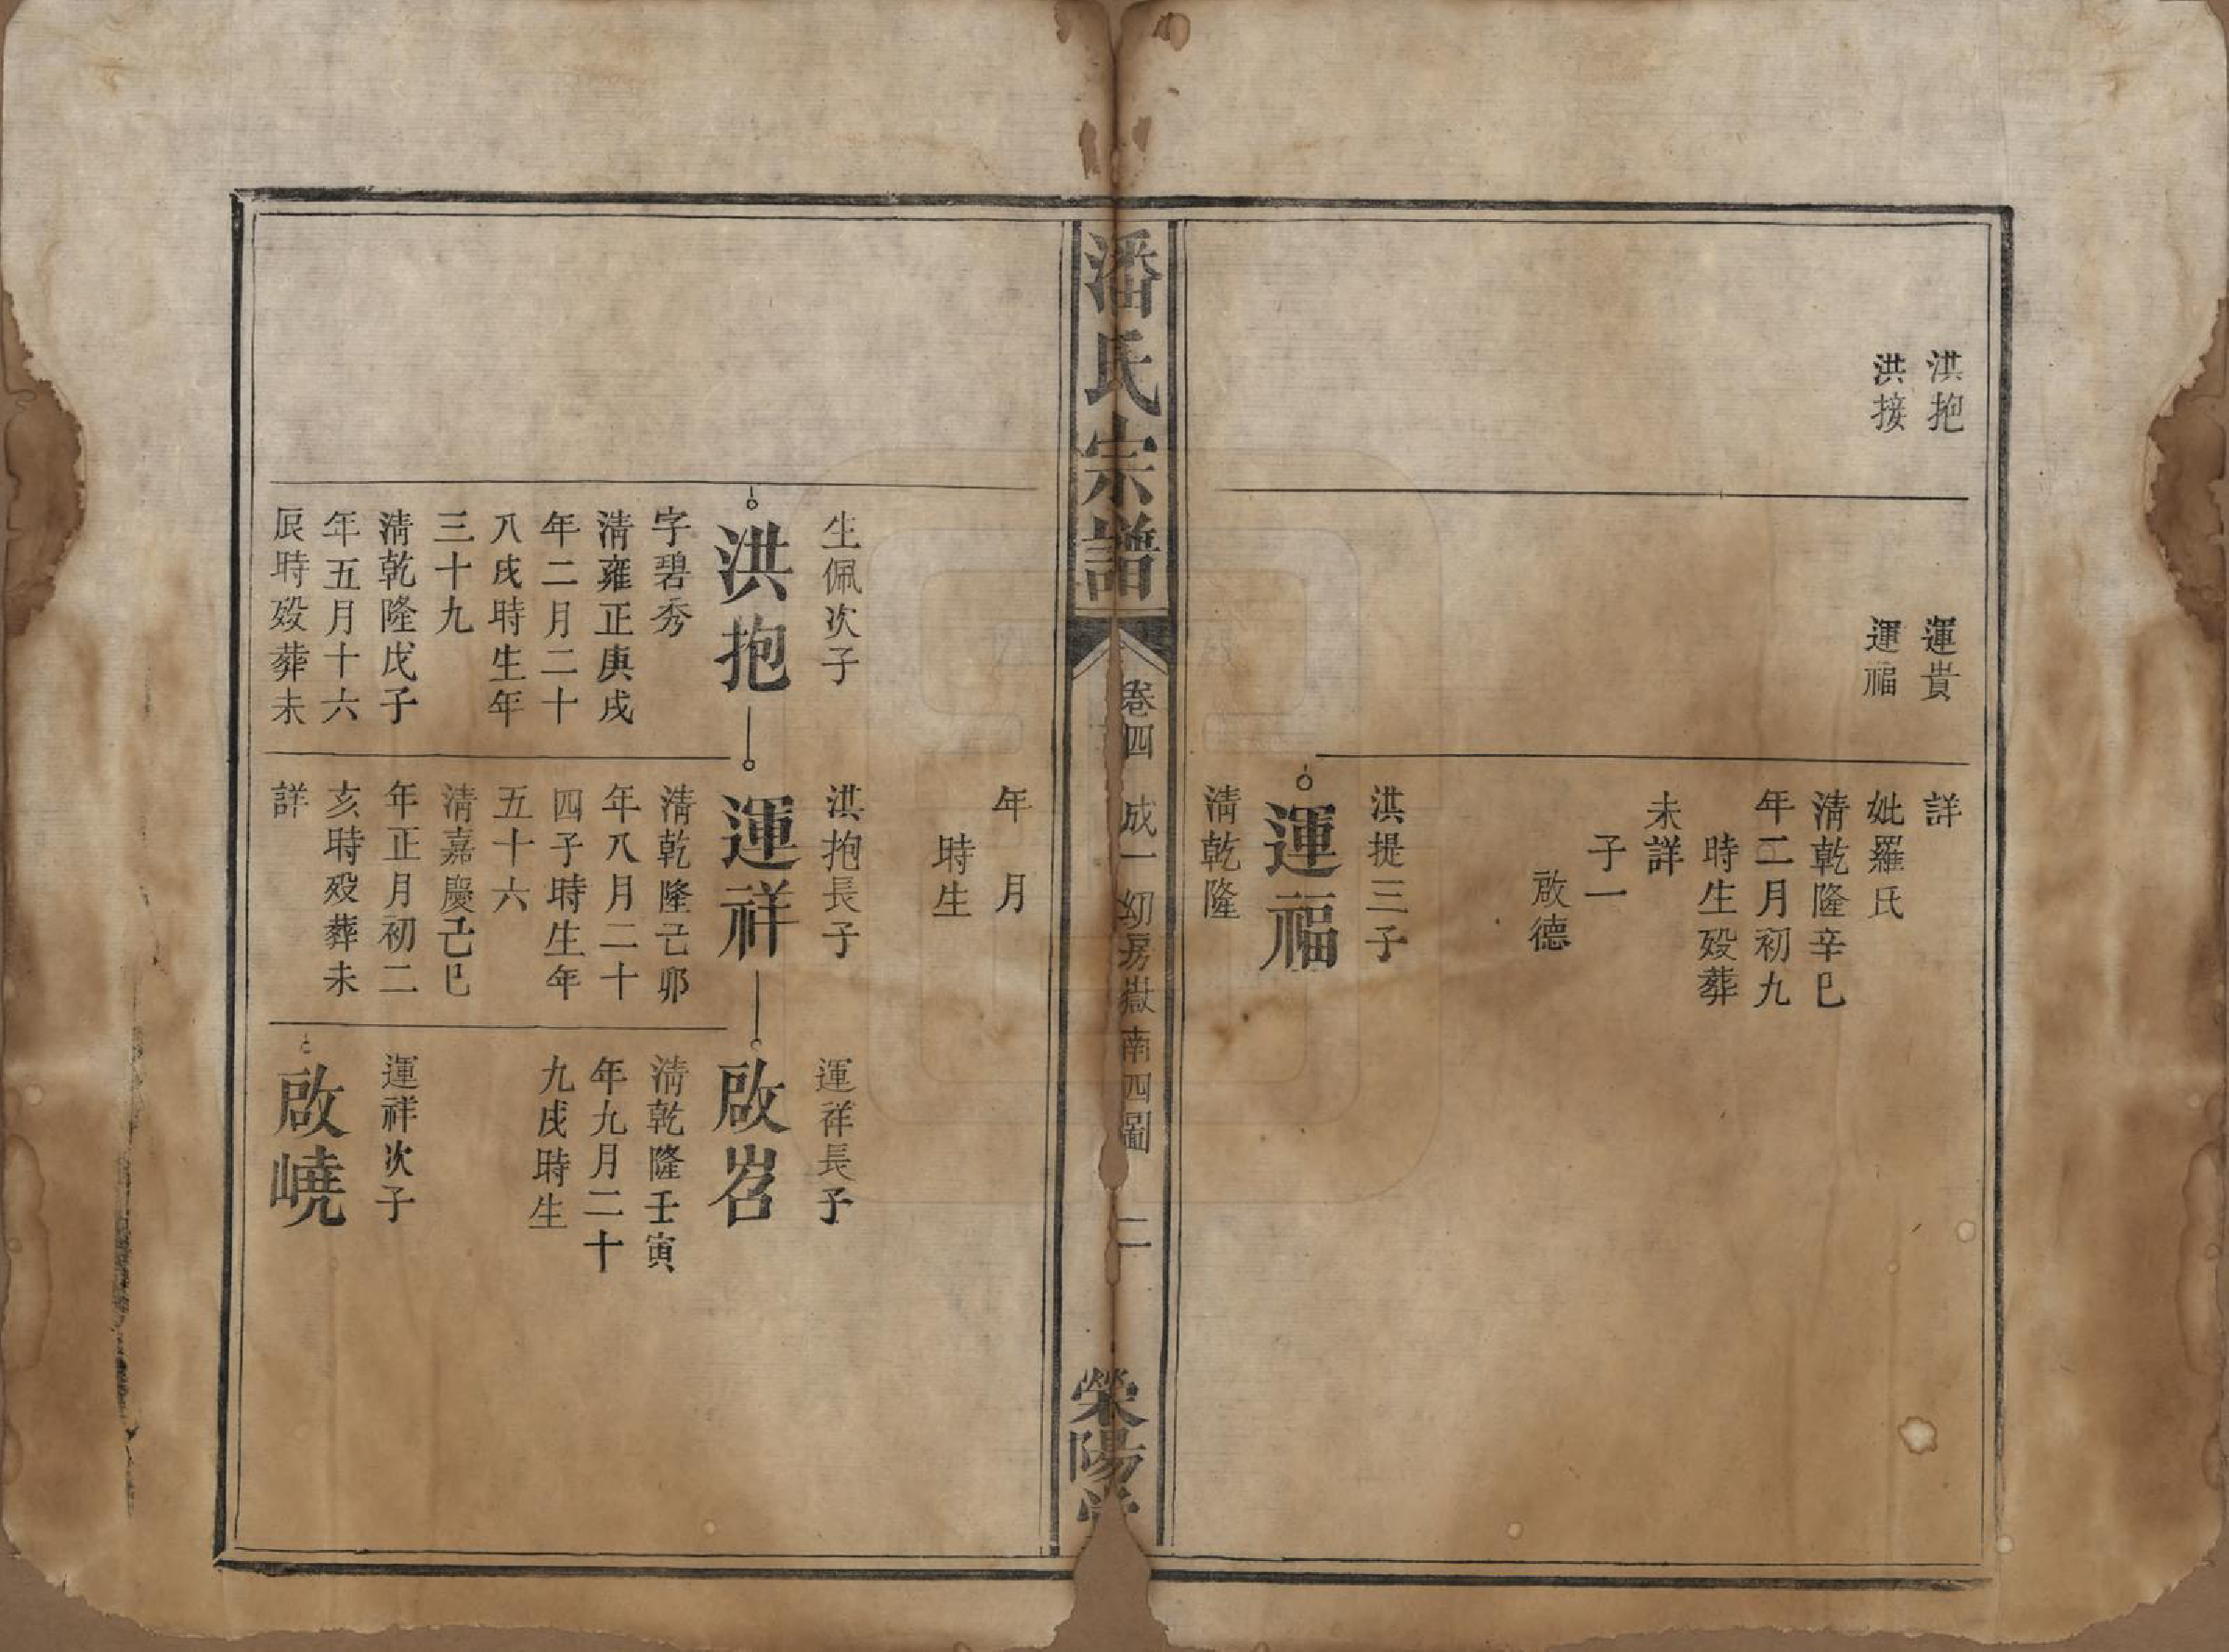 洪抱
洪接
運貴
運福
詳
妣羅氏
淸乾隆辛巳
年二月初九
時生歿葬
未詳
子一
啟德
洪提三子
運福
淸乾隆
潘氏宗譜
卷四
成一幼房嶽南四圖
二
滎陽堂
年月
時生
生佩次子
洪抱
字碧秀
淸雍正庚戌
年二月二十
八戌時生年
三十九
淸乾隆戊子
年五月十六
辰時歿葬未
洪抱長子
運祥
淸乾隆己卯
年八月二十
四子時生年
五十六
淸嘉慶己巳
年正月初二
亥時歿葬未
詳
運祥長子
啟岧
淸乾隆壬寅
年九月二十
九戌時生
運祥次子
啟嶢